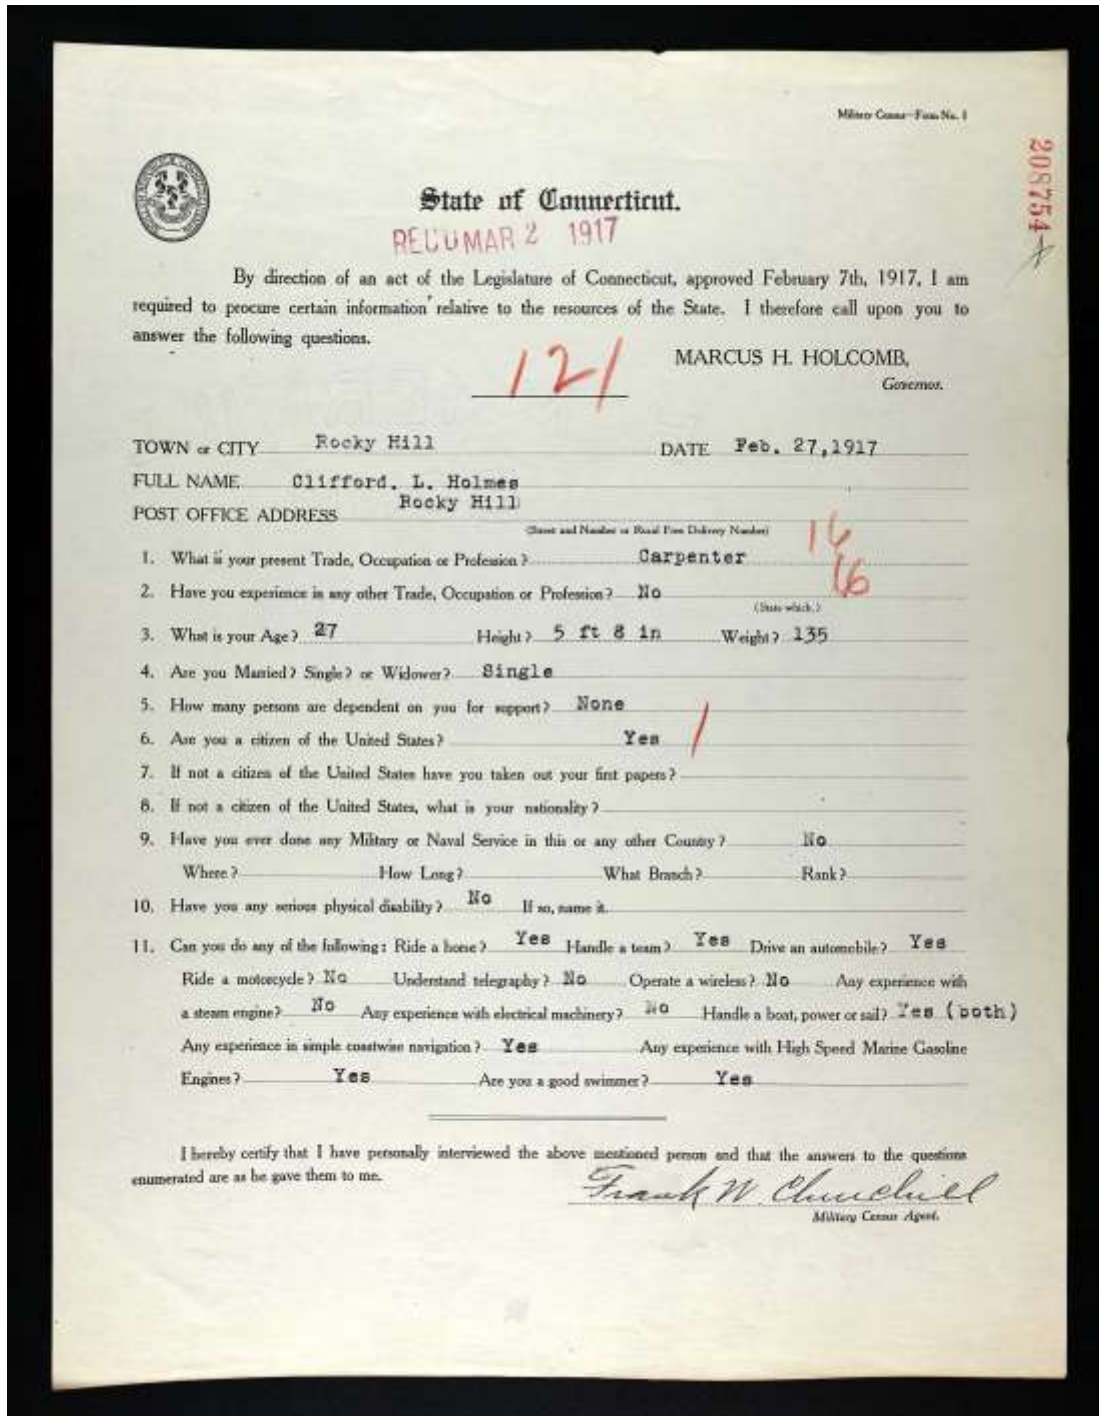 Military Census—Form No. 1
208754
State of Connecticut.
REC'D MAR 2 1917
By direction of an act of the Legislature of Connecticut, approved February 7th, 1917, I am
required to procure certain information relative to the resources of the State. I therefore call upon you to
answer the following questions.
MARCUS H. HOLCOMB,
121
Governor.
TOWN or CITY Rocky Hill DATE Feb. 27,1917
FULL NAME Clifford. L. Holmes
POST OFFICE ADDRESS Rocky Hill
(Street and Number or Rural Free Delivery Number)
16
1. What is your present Trade, Occupation or Profession? Carpenter
16
2. Have you experience in any other Trade, Occupation or Profession? No
(State which.)
3. What is your Age? 27 Height? 5 ft 8 in Weight? 135
4. Are you Married? Single? or Widower? Single
5. How many persons are dependent on you for support? None
6. Are you a citizen of the United States? Yes /
7. If not a citizen of the United States have you taken out your first papers?
8. If not a citizen of the United States, what is your nationality?
9. Have you ever done any Military or Naval Service in this or any other Country? No
Where? How Long? What Branch? Rank?
10. Have you any serious physical disability? No If so, name it.
11. Can you do any of the following: Ride a horse? Yes Handle a team? Yes Drive an automobile? Yes
Ride a motorcycle? No Understand telegraphy? No Operate a wireless? No Any experience with
a steam engine? No Any experience with electrical machinery? No Handle a boat, power or sail? Yes (both)
Any experience in simple coastwise navigation? Yes Any experience with High Speed Marine Gasoline
Engines? Yes Are you a good swimmer? Yes
I hereby certify that I have personally interviewed the above mentioned person and that the answers to the questions
enumerated are as he gave them to me.
Frank W. Churchill
Military Census Agent.